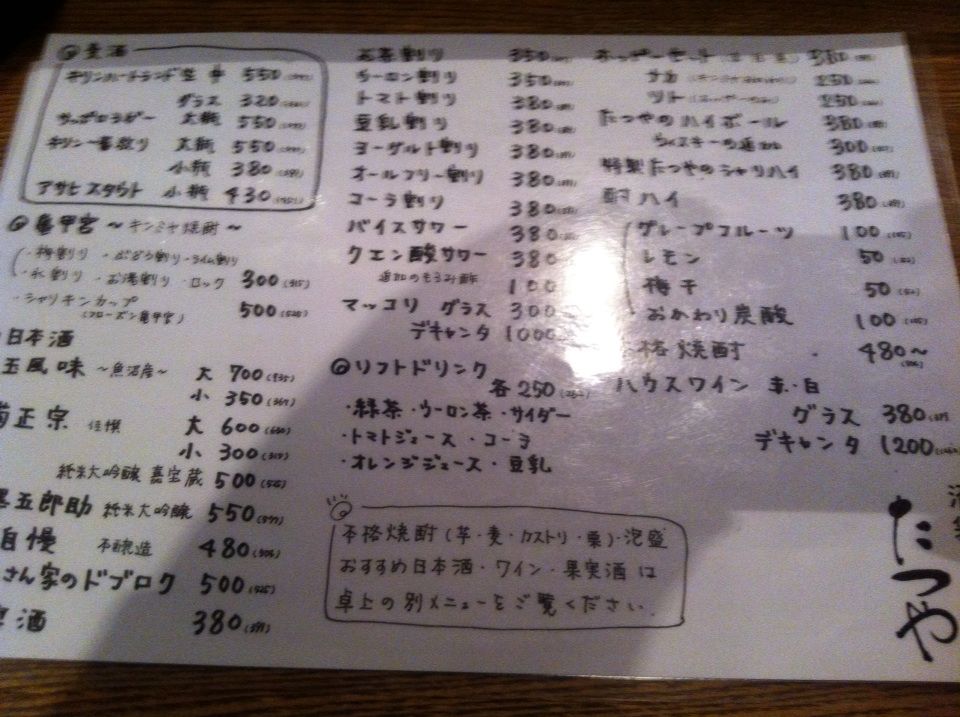 麦酒
キリンハートランド 生 中 550
グラス 320
サッポロラガー 大瓶 550
キリン一番搾り 大瓶 550
小瓶 380
アサヒスタウト 小瓶 430
亀甲宮 ～キンミヤ焼酎～
・梅割り ・ぶどう割り ・ライム割り
・水割り ・お湯割り ・ロック 300(315)
・シャリキンカップ 500(525)
(フローズン亀甲宮)
日本酒
玉風味 ～魚沼産～ 大 700(735)
小 350(367)
菊正宗 大 600(630)
小 300(315)
純米大吟醸 嘉宝蔵 500(525)
五郎助 純米大吟醸 550(577)
自慢 本醸造 480
さん家のドブロク 500(525)
酒 380
お茶割り 350
ウーロン割り 350
トマト割り 380
豆乳割り 380
ヨーグルト割り 380
オールフリー割り 380
コーラ割り 380
バイスサワー 380
クエン酸サワー 380
追加のもろみ酢 100
マッコリ グラス 300
デキャンタ 1000
ソフトドリンク
各 250
・緑茶・ウーロン茶・サイダー
・トマトジュース・コーラ
・オレンジジュース・豆乳
本格焼酎(芋・麦・カストリ・栗)・泡盛
おすすめ日本酒・ワイン・果実酒は
卓上の別メニューをご覧ください。
ホッピーセット 380
ナカ 250
ソト 250
たつやのハイボール 380
ウィスキーの追加 300
特製たつやのシャリハイ 380
酎ハイ 380
グレープフルーツ 100
レモン 50
梅干 50
おかわり炭酸 100
格焼酎 480～
ハウスワイン 赤・白
グラス 380
デキャンタ 1200
たつや